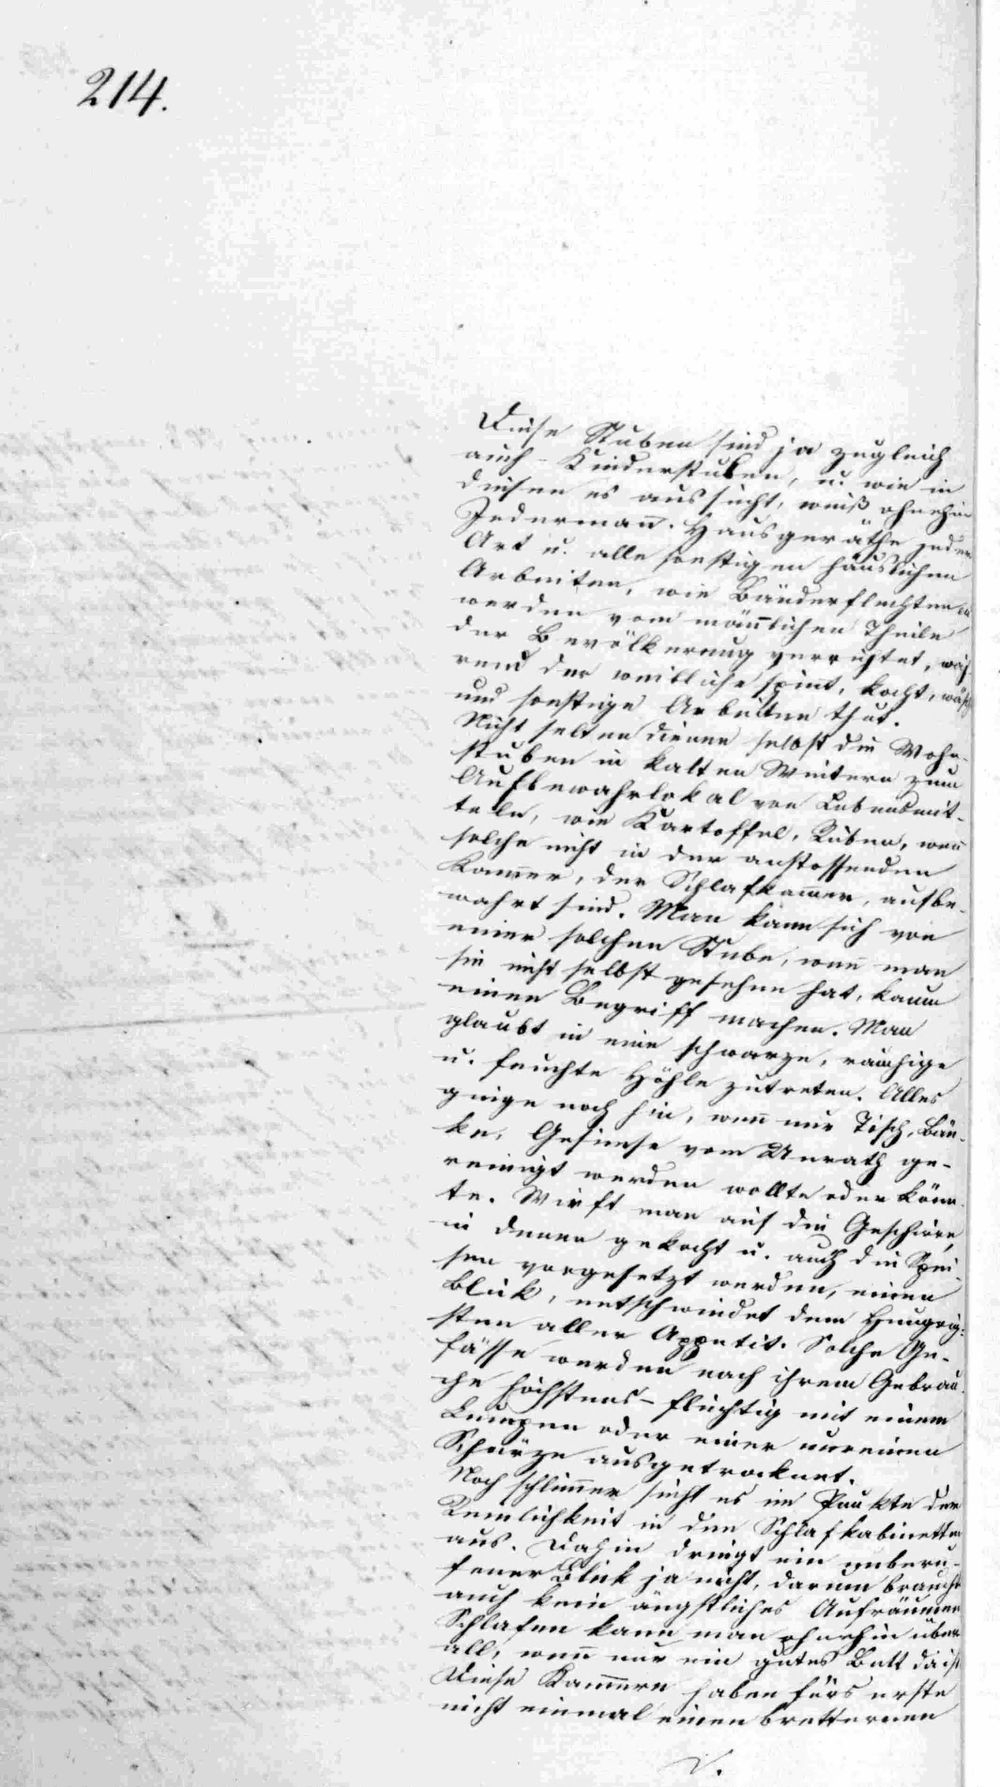 214.
Diese Stuben sind ja zugleich
auch - Kinderstuben, u. wie in
diesen es aussieht, weiß ohnehin
Jedermañ. Hausgeräthe jeder
Art u. alle sonstigen häuslichen
Arbeiten, wie Bänderflechten
werden vom mäñlichen Theile
der Bevölkerung verrichtet, wäh-
rend der weibliche spiñt, kocht, wäscht
und sonstige Arbeiten thut.
Nicht selten dienen selbst die Wohn-
stuben in kalten Wintern zum
Aufbewahrlokal von Lebensmit-
teln, wie Kartoffel, Rüben, weñ
solche nicht in der anstossenden
Kam̃er, der Schlafkam̃er, aufbe-
wahrt sind. Man kann sich von
einer solchen Stube, weñ man
sie nicht selbst gesehen hat, kaum
einen Begriff machen. Man
glaubt in eine schwarze, rauchige
u. feuchte Höhle zutreten. Alles
ginge noch hin, weñ nur Tisch, Bän-
ke, Gesimse vom Unrath ge-
reinigt werden wollte oder könn-
te. Wirft man auf die Geschirre,
in denen gekocht u. auch die Spei-
sen vorgesetzt werden, einen
Blick, entschwindet dem Hungrig-
sten aller Appetit. Solche Ge-
fässe werden nach ihrem Gebrau-
che höchstens - flüchtig mit einem
Lumpen oder einer unreinen
Schürze ausgetrocknet.
Noch schlim̃er sieht es im Punkte der
Reinlichkeit in den Schlafkabinetten
aus. Dahin dringt ein unberu-
fener Blick ja nicht, darum braucht
auch kein ängstliches Aufräumen
Schlafen kann man ohnehin über-
all, weñ nur ein gutes Bett da ist
Diese Kam̃ern haben fürs erste
nicht einmal einen bretternen